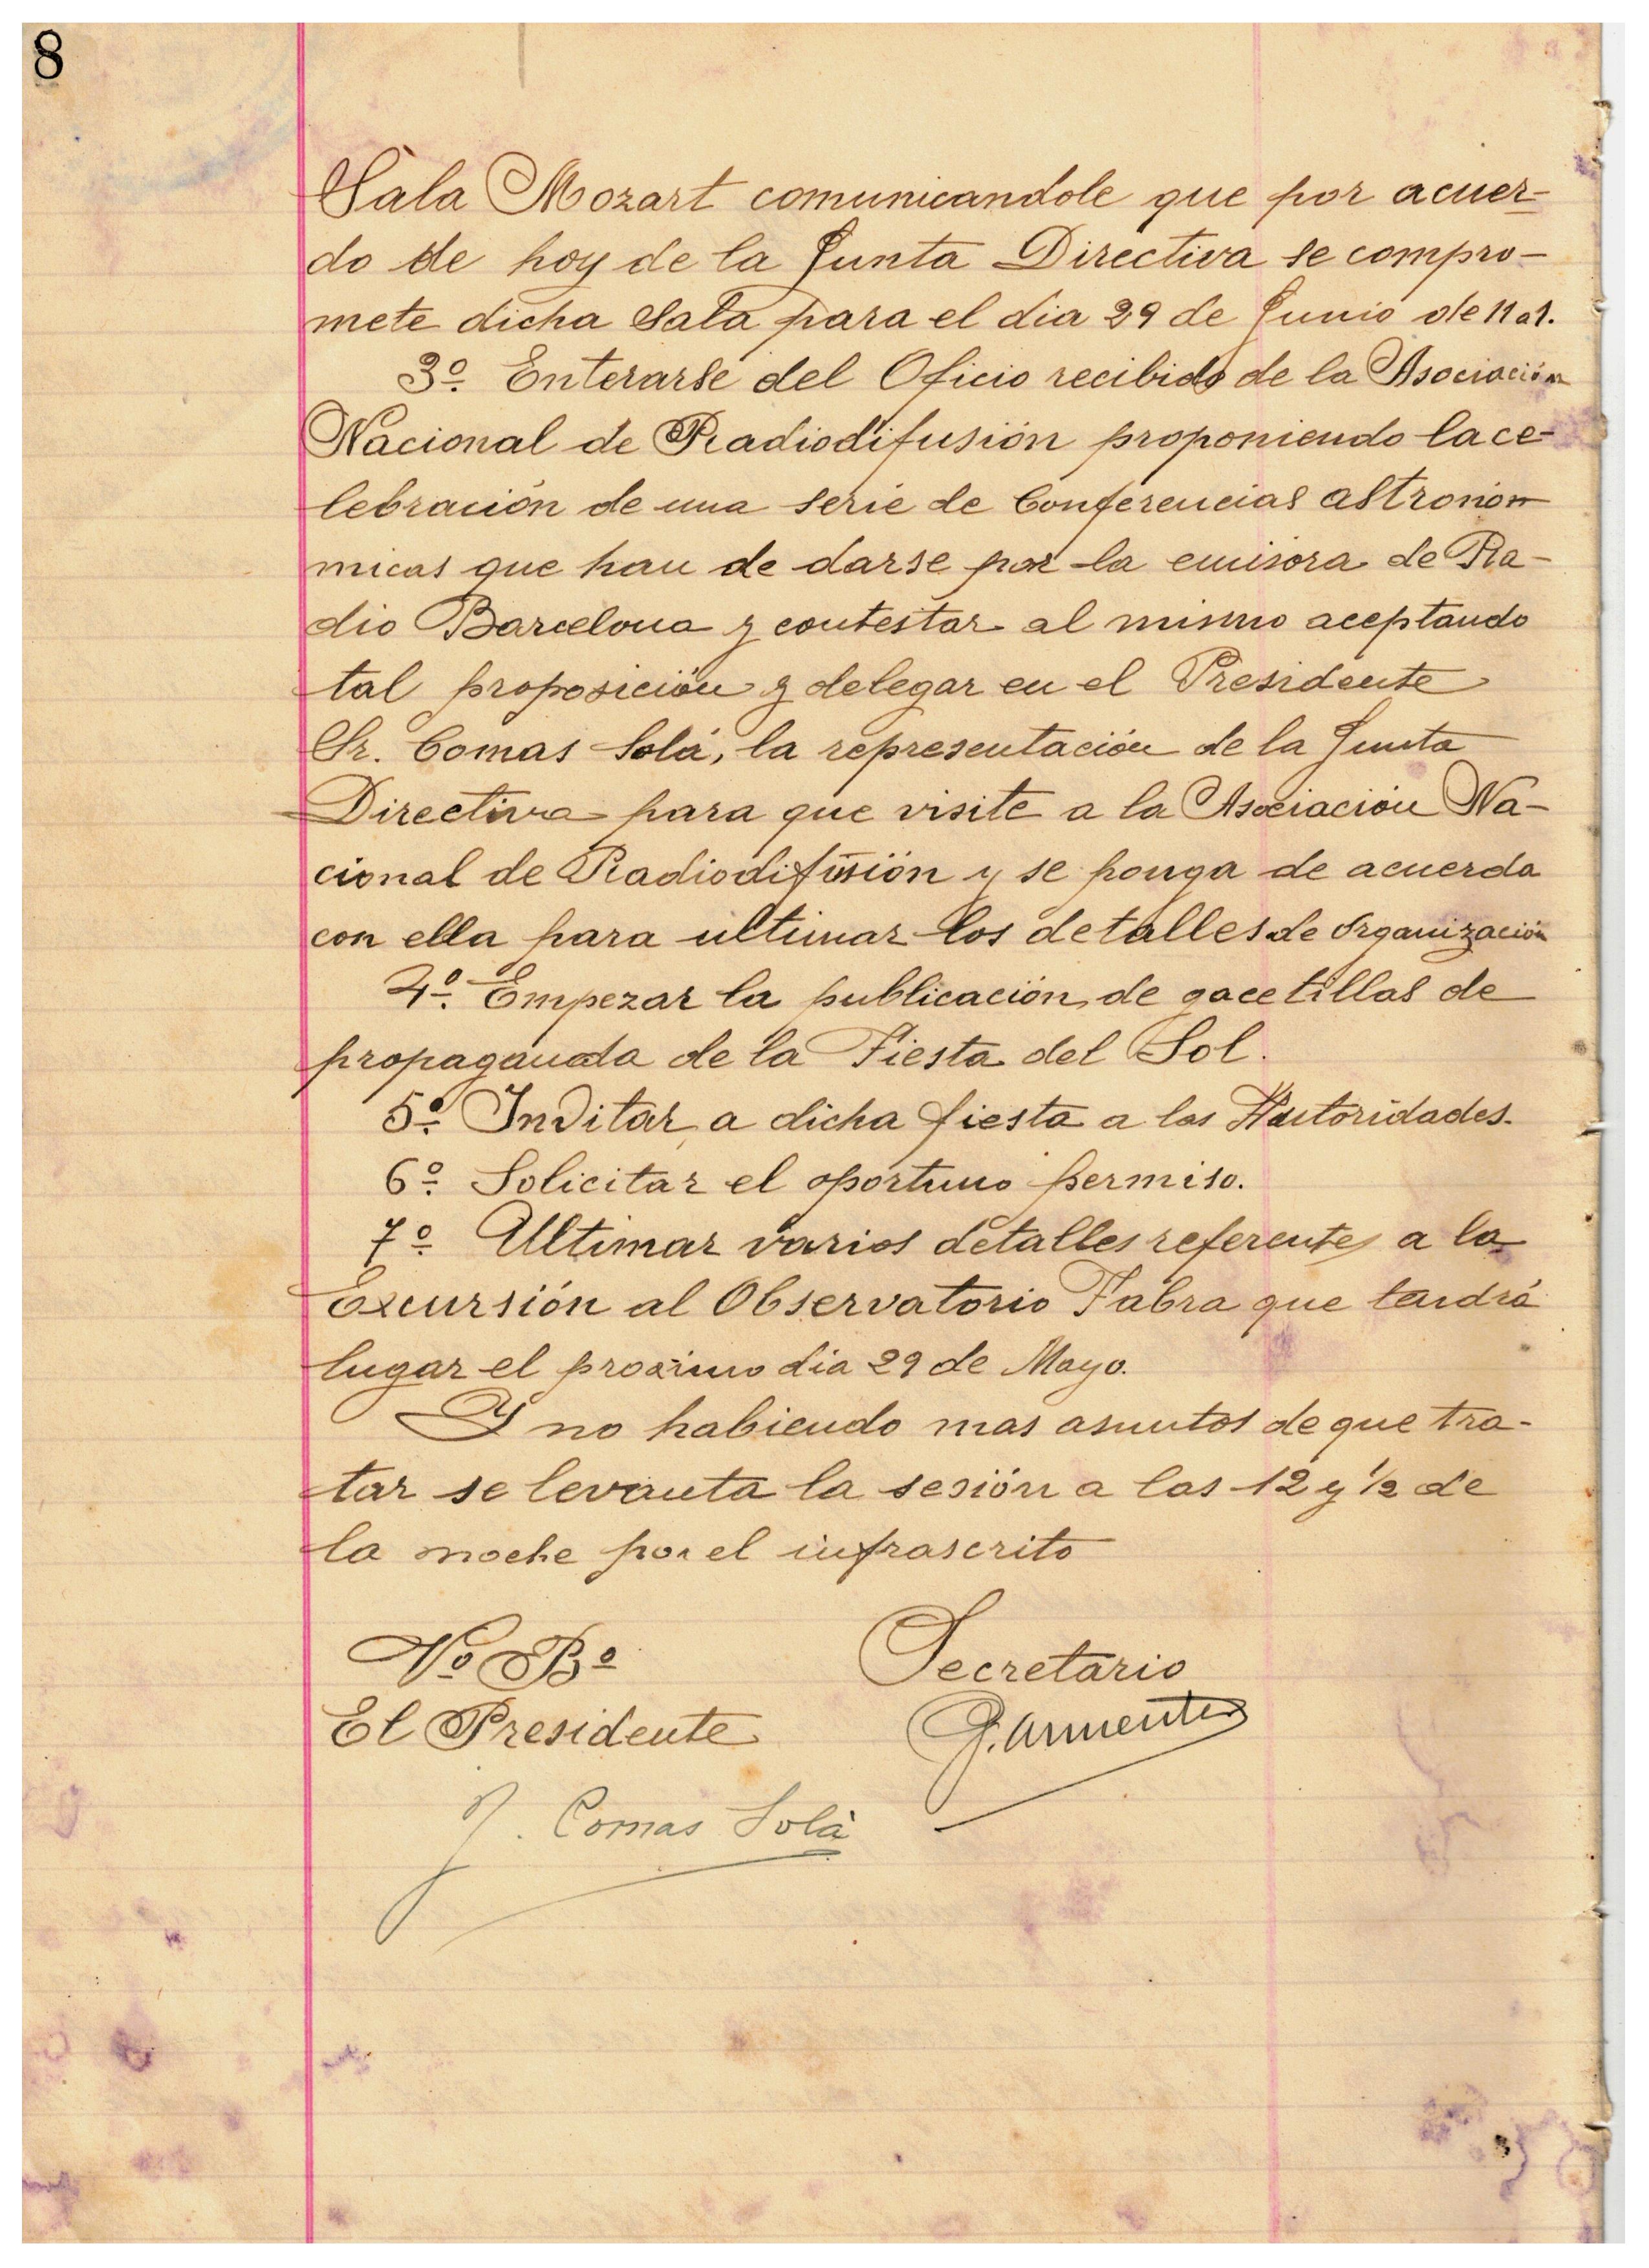 8
Sala Mozart comunicandole que por acuer-
do de hoy de la Junta Directiva se compro-
mete dicha Sala para el dia 29 de Junio de 11 a 1.
3º Enterarse del Oficio recibido de la Asociación
Nacional de Radiodifusión proponiendo la ce-
lebración de una serie de Conferencias astronón
micas que han de darse por la emisora de Ra-
dio Barcelona y contestar al mismo aceptando
tal proposición y delegar en el Presidente
Sr. Comas Solá, la representación de la Junta
Directiva para que visite a la Asociación Na-
cional de Radiodifusión y se ponga de acuerdo
con ella para ultimar los detalles de organización
4º. Empezar la publicación de gacetillas de
propaganda de la Fiesta del Sol.
5º. Invitar a dicha fiesta a las Autoridades.
6º. Solicitar el oportuno permiso.
7º Ultimar varios detalles referentes a la
Excursión al Observatorio Fabra que tendrá
lugar el proximo dia 29 de Mayo.
Y no habiendo mas asuntos de que tra-
tar se levanta la sesión a las 12 y ½ de
la noche por el infrascrito
Vº Bº Secretario
El Presidente G. Armenter
J. Comas Solà